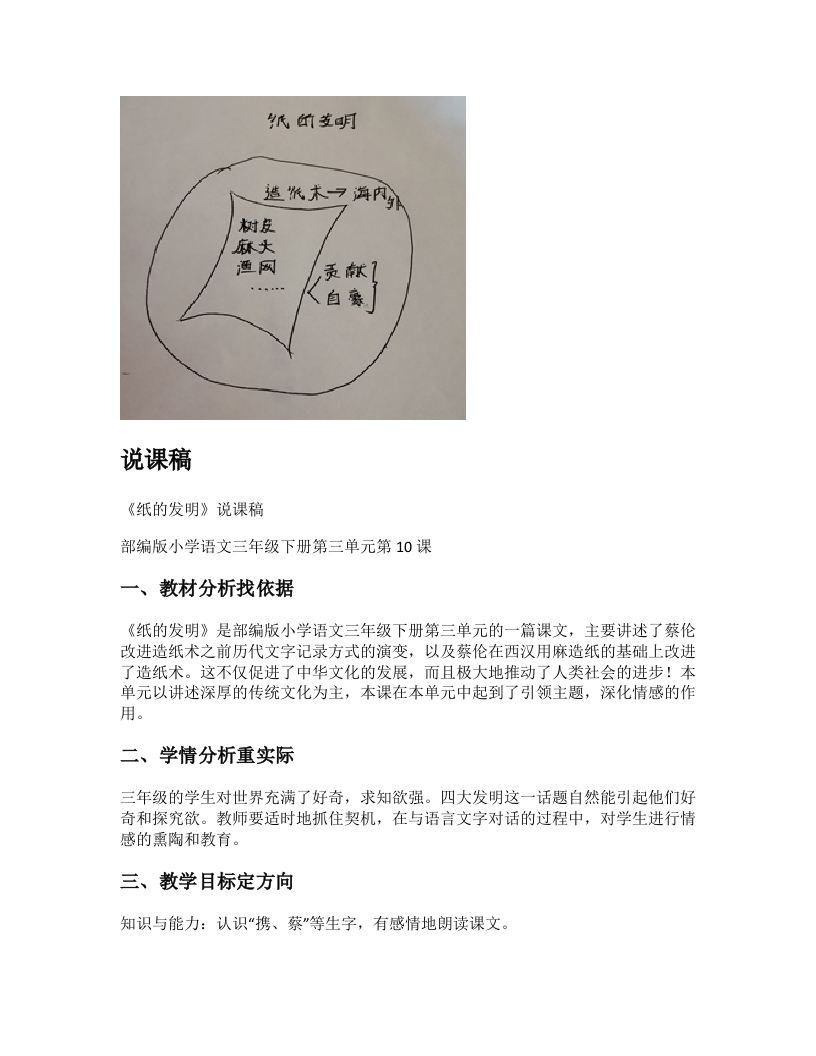 纸的发明
造纸术→海内外
树皮
麻头
渔网
……
贡献
自豪
说课稿
《纸的发明》说课稿
部编版小学语文三年级下册第三单元第 10 课
一、教材分析找依据
《纸的发明》是部编版小学语文三年级下册第三单元的一篇课文，主要讲述了蔡伦
改进造纸术之前历代文字记录方式的演变，以及蔡伦在西汉用麻造纸的基础上改进
了造纸术。这不仅促进了中华文化的发展，而且极大地推动了人类社会的进步！本
单元以讲述深厚的传统文化为主，本课在本单元中起到了引领主题，深化情感的作
用。
二、学情分析重实际
三年级的学生对世界充满了好奇，求知欲强。四大发明这一话题自然能引起他们好
奇和探究欲。教师要适时地抓住契机，在与语言文字对话的过程中，对学生进行情
感的熏陶和教育。
三、教学目标定方向
知识与能力：认识“携、蔡”等生字，有感情地朗读课文。